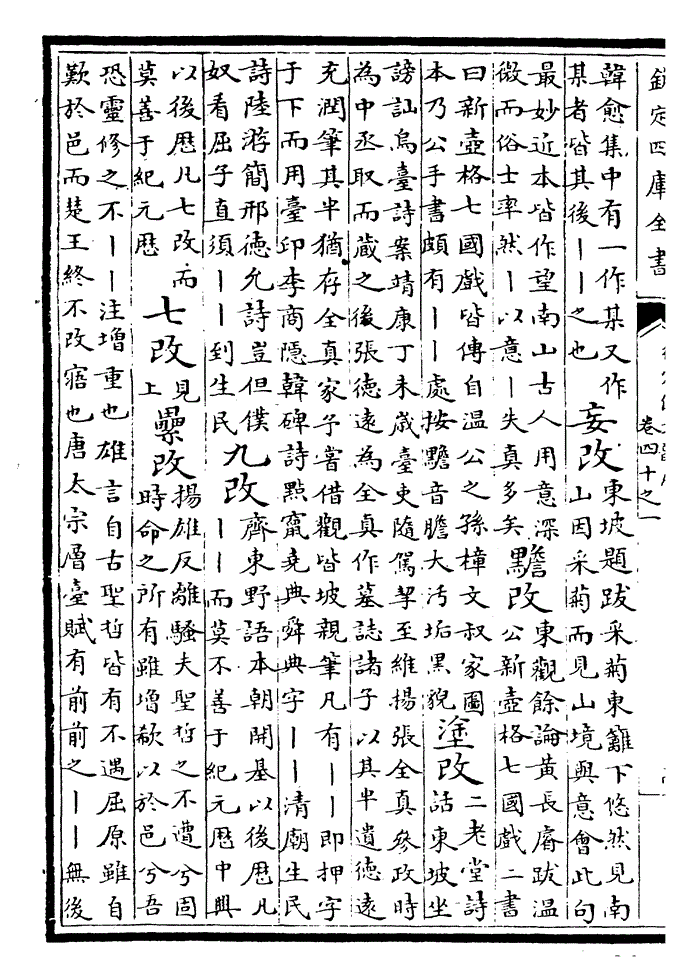 欽定四庫全書
卷四十之一
韓愈集中有一作某又作
某者皆其後丨丨之也
妄改
東坡題跋采菊東籬下悠然見南
山因采菊而見山境與意會此句
最妙近本皆作望南山古人用意深
微而俗士率然丨以意丨失真多矣
黵改
東觀餘論黃長睿跋温
公新壺格七國戲二書
曰新壺格七國戲皆傳自温公之孫樟文叔家圖
本乃公手書頗有丨丨處按黵音膽大汚垢黑貌
塗改
二老堂詩
話東坡坐
謗訕烏臺詩案靖康丁未歲臺吏隨駕挈至維揚張全真參政時
為中丞取而蔵之後張德遠為全真作墓誌諸子以其半遺德遠
充潤筆其半猶存全真家子嘗借觀皆坡親筆凡有丨丨即押字
于下而用臺印李商隱韓碑詩點竄堯典舜典字丨丨清廟生民
詩陸游簡邢德允詩豈但僕
奴看屈子直須丨丨到生民
九改
齊東野語本朝開基以後厯凡
丨丨而莫不善于紀元厯中興
以後厯凡七改而
莫善于紀元厯
七改
見
上
纍改
揚雄反離騷夫聖哲之不遭兮固
時命之所有雖增欷以於邑兮吾
恐靈修之不丨丨注增重也雄言自古聖哲皆有不遇屈原雖自
歎於邑而楚王終不改寤也唐太宗層臺賦有前前之丨丨無後